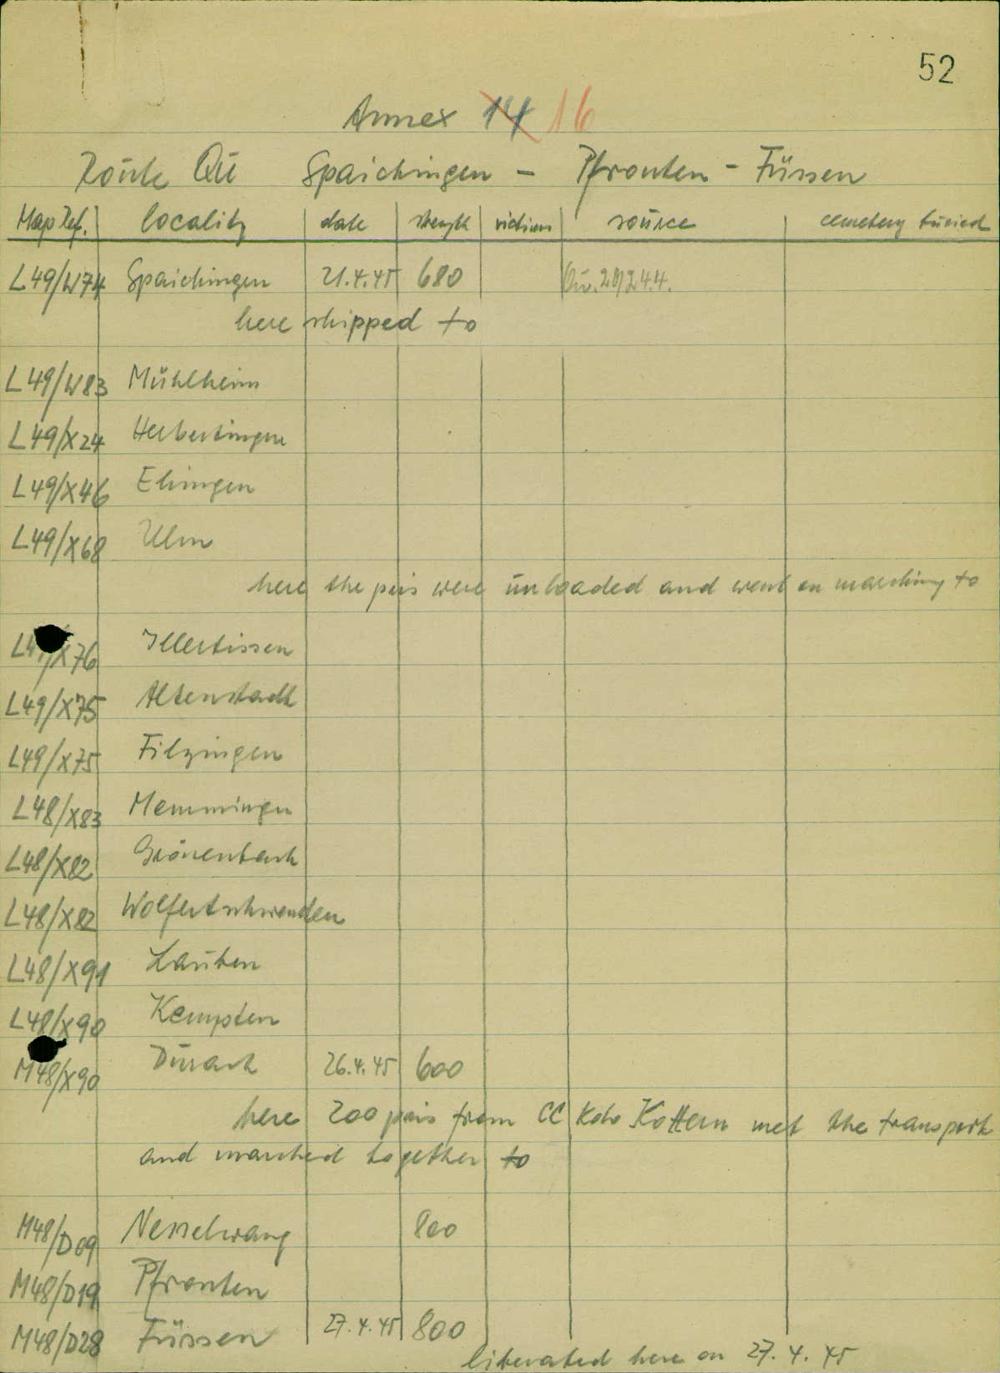 52
Annex 14 16
Route Qu Spaichingen - Pfronten - Füssen
Map Ref. locality date strength victims source cemetery buried
L49/W74 Spaichingen 21.4.45 680
here shipped to
L49/W83 Mühlheim
L49/X24 Herbertingen
L49/X46 Ehingen
L49/X68 Ulm
here the pris were unloaded and went on marching to
X76 Illertissen
L49/X75 Altenstadt
L49/X75 Filzingen
L48/X83 Memmingen
L48/X82 Grönenbach
L48/X82 Wolfertschwenden
L48/X91 Lauben
L48/X90 Kempten
M48/X90 Durach 26.4.45 600
here 200 pris from CC Kdo Kottern met the transport
and marched together to
M48/D09 Nesselwang 800
M48/D19 Pfronten
M48/D28 Füssen 27.4.45 800
liberated here on 27.4.45